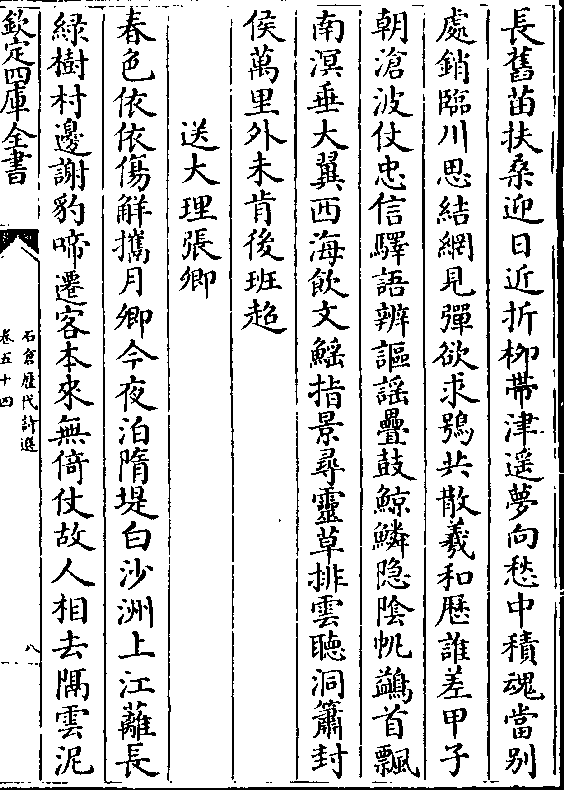 長舊苗扶桑迎日近折柳帶津遥夢向愁中積魂當别
處銷臨川思結網見彈欲求鴞共散羲和歴誰差甲子
朝滄波仗忠信驛語辨謳謡疊鼓鯨鱗隱陰帆鷁首飄
南溟垂大翼西海飲文鰩指景尋靈草排雲聽洞簫封
侯萬里外未肯後班超
送大理張卿
春色依依傷解攜月卿今夜泊隋堤白沙洲上江蘺長
緑樹村邊謝豹啼遷客本來無倚仗故人相去隔雲泥
欽定四庫全書
石倉歴代詩選
卷五十四
八